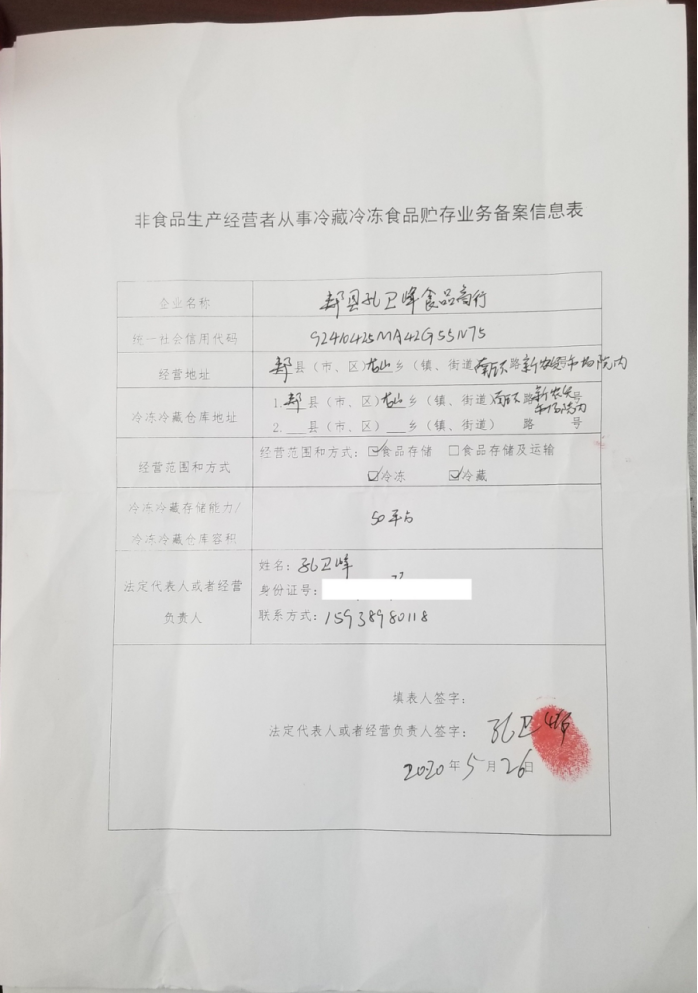 非食品生产经营者从事冷藏冷冻食品贮存业务备案信息表
企业名称 郏县孔卫峰食品商行
统一社会信用代码 92410425MA42G55N75
经营地址 郏县(市、区)龙山乡(镇、街道) 路新农贸市场院内
冷冻冷藏仓库地址
1.郏县(市、区)龙山乡(镇、街道) 路 号
2.___县(市、区)___乡(镇、街道) 路 号
经营范围和方式 经营范围和方式:☑食品存储 □食品存储及运输
☑冷冻 ☑冷藏
冷冻冷藏存储能力/
冷冻冷藏仓库容积
50平方
法定代表人或者经营
负责人
姓名:孔卫峰
身份证号:
联系方式:15938980118
填表人签字:
法定代表人或者经营负责人签字: 孔卫峰
2020年5月26日